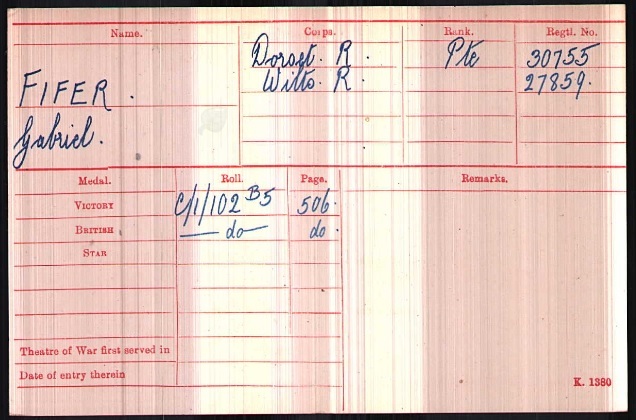 Name. Corps. Rank. Regtl. No.
Dorset. R. Pte 30755
Wilts. R. 27859.
FIFER.
Gabriel.
Medal. Roll. Page. Remarks.
VICTORY C/1/102 B5 506.
BRITISH — do — do.
STAR
Theatre of War first served in
Date of entry therein
K. 1380